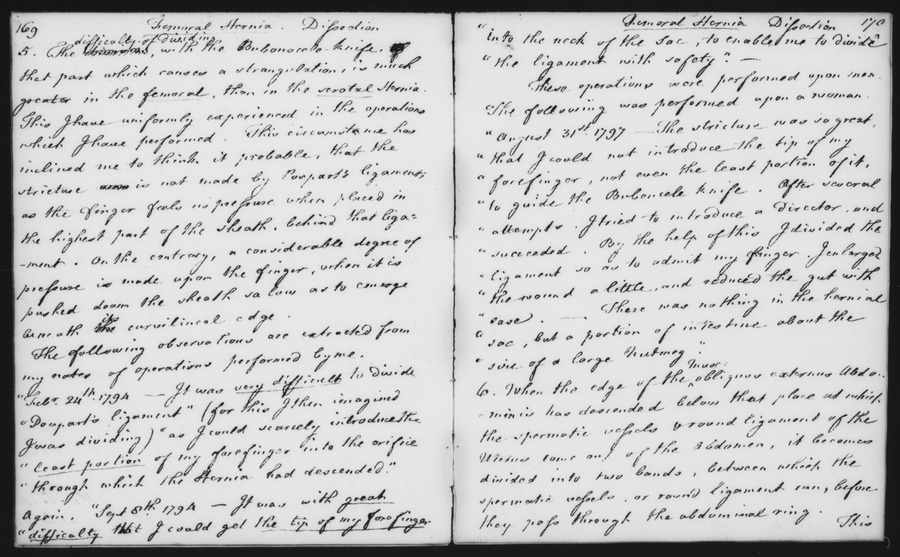 169 Femoral Hernia. Dissection
5. The difficulty of dividing, with the Bubonocele Knife,
that part which causes a strangulation, is much
greater in the femoral, than in the scrotal Hernia.
This I have uniformly experienced in the operations
which I have performed. This circumstance has
inclined me to think it probable, that the
stricture is not made by Poupart's ligament;
as the finger feels no pressure when placed in
the highest part of the sheath, behind that liga=
-ment. On the contrary, a considerable degree of
pressure is made upon the finger, when it is
pushed down the sheath so low as to emerge
beneath its curvilineal edge.
The following observations are extracted from
my notes of operations performed by me.
"Feb. 24th 1794 — It was very difficult to divide
"Poupart's ligament" (for this I then imagined
I was dividing) "as I could scarcely introduce the
"least portion of my forefinger into the orifice
"through which the Hernia had descended."
Again, "Sept 8th 1794 — It was with great
"difficulty that I could get the tip of my forefinger
Femoral Hernia Dissection 170
"into the neck of the sac, to enable me to divide
"the ligament with safety". —
These operations were performed upon men.
The following was performed upon a woman.
"August 31st 1797 — The stricture was so great,
"that I could not introduce the tip of my
"forefinger, not even the least portion of it,
"to guide the Bubonocele Knife. After several
"attempts I tried to introduce a Director, and
"succeeded. By the help of this I divided the
"ligament so as to admit my finger. I enlarged
"the wound a little, and reduced the gut with
"ease. — There was nothing in the hernial
"sac, but a portion of intestine about the
"size of a large Nutmeg."
6. When the edge of the Musc: obliquus externus Abdo-
-minis has descended below that place at which
the spermatic vessels or round ligament of the
Uterus come out of the Abdomen, it becomes
divided into two bands, between which the
spermatic vessels, or round ligament run, before
they pass through the abdominal ring.
This